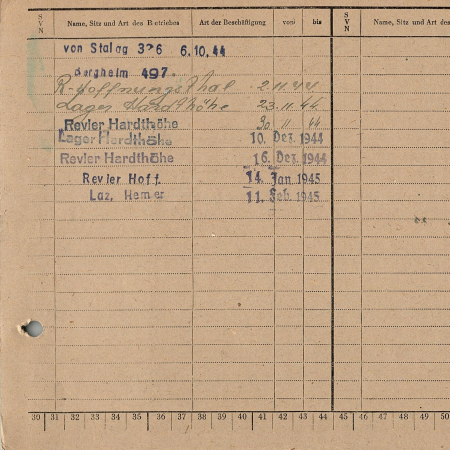 S V N Name, Sitz und Art des Betriebes Art der Beschäftigung von bis S V N Name, Sitz und Art des
von Stalag 326 6.10.44
Bergheim 497.
R-Hoffnungsthal 2.11.44
Lager Hardthöhe 23.11.44
Revier Hardthöhe 30.11.44
Lager Hardthöhe 10. Dez. 1944
Revier Hardthöhe 16. Dez. 1944
Revier Hoff. 14. Jan 1945
Laz. Hemer 11. Feb. 1945
30 31 32 33 34 35 36 37 38 39 40 41 42 43 44 45 46 47 48 49 50